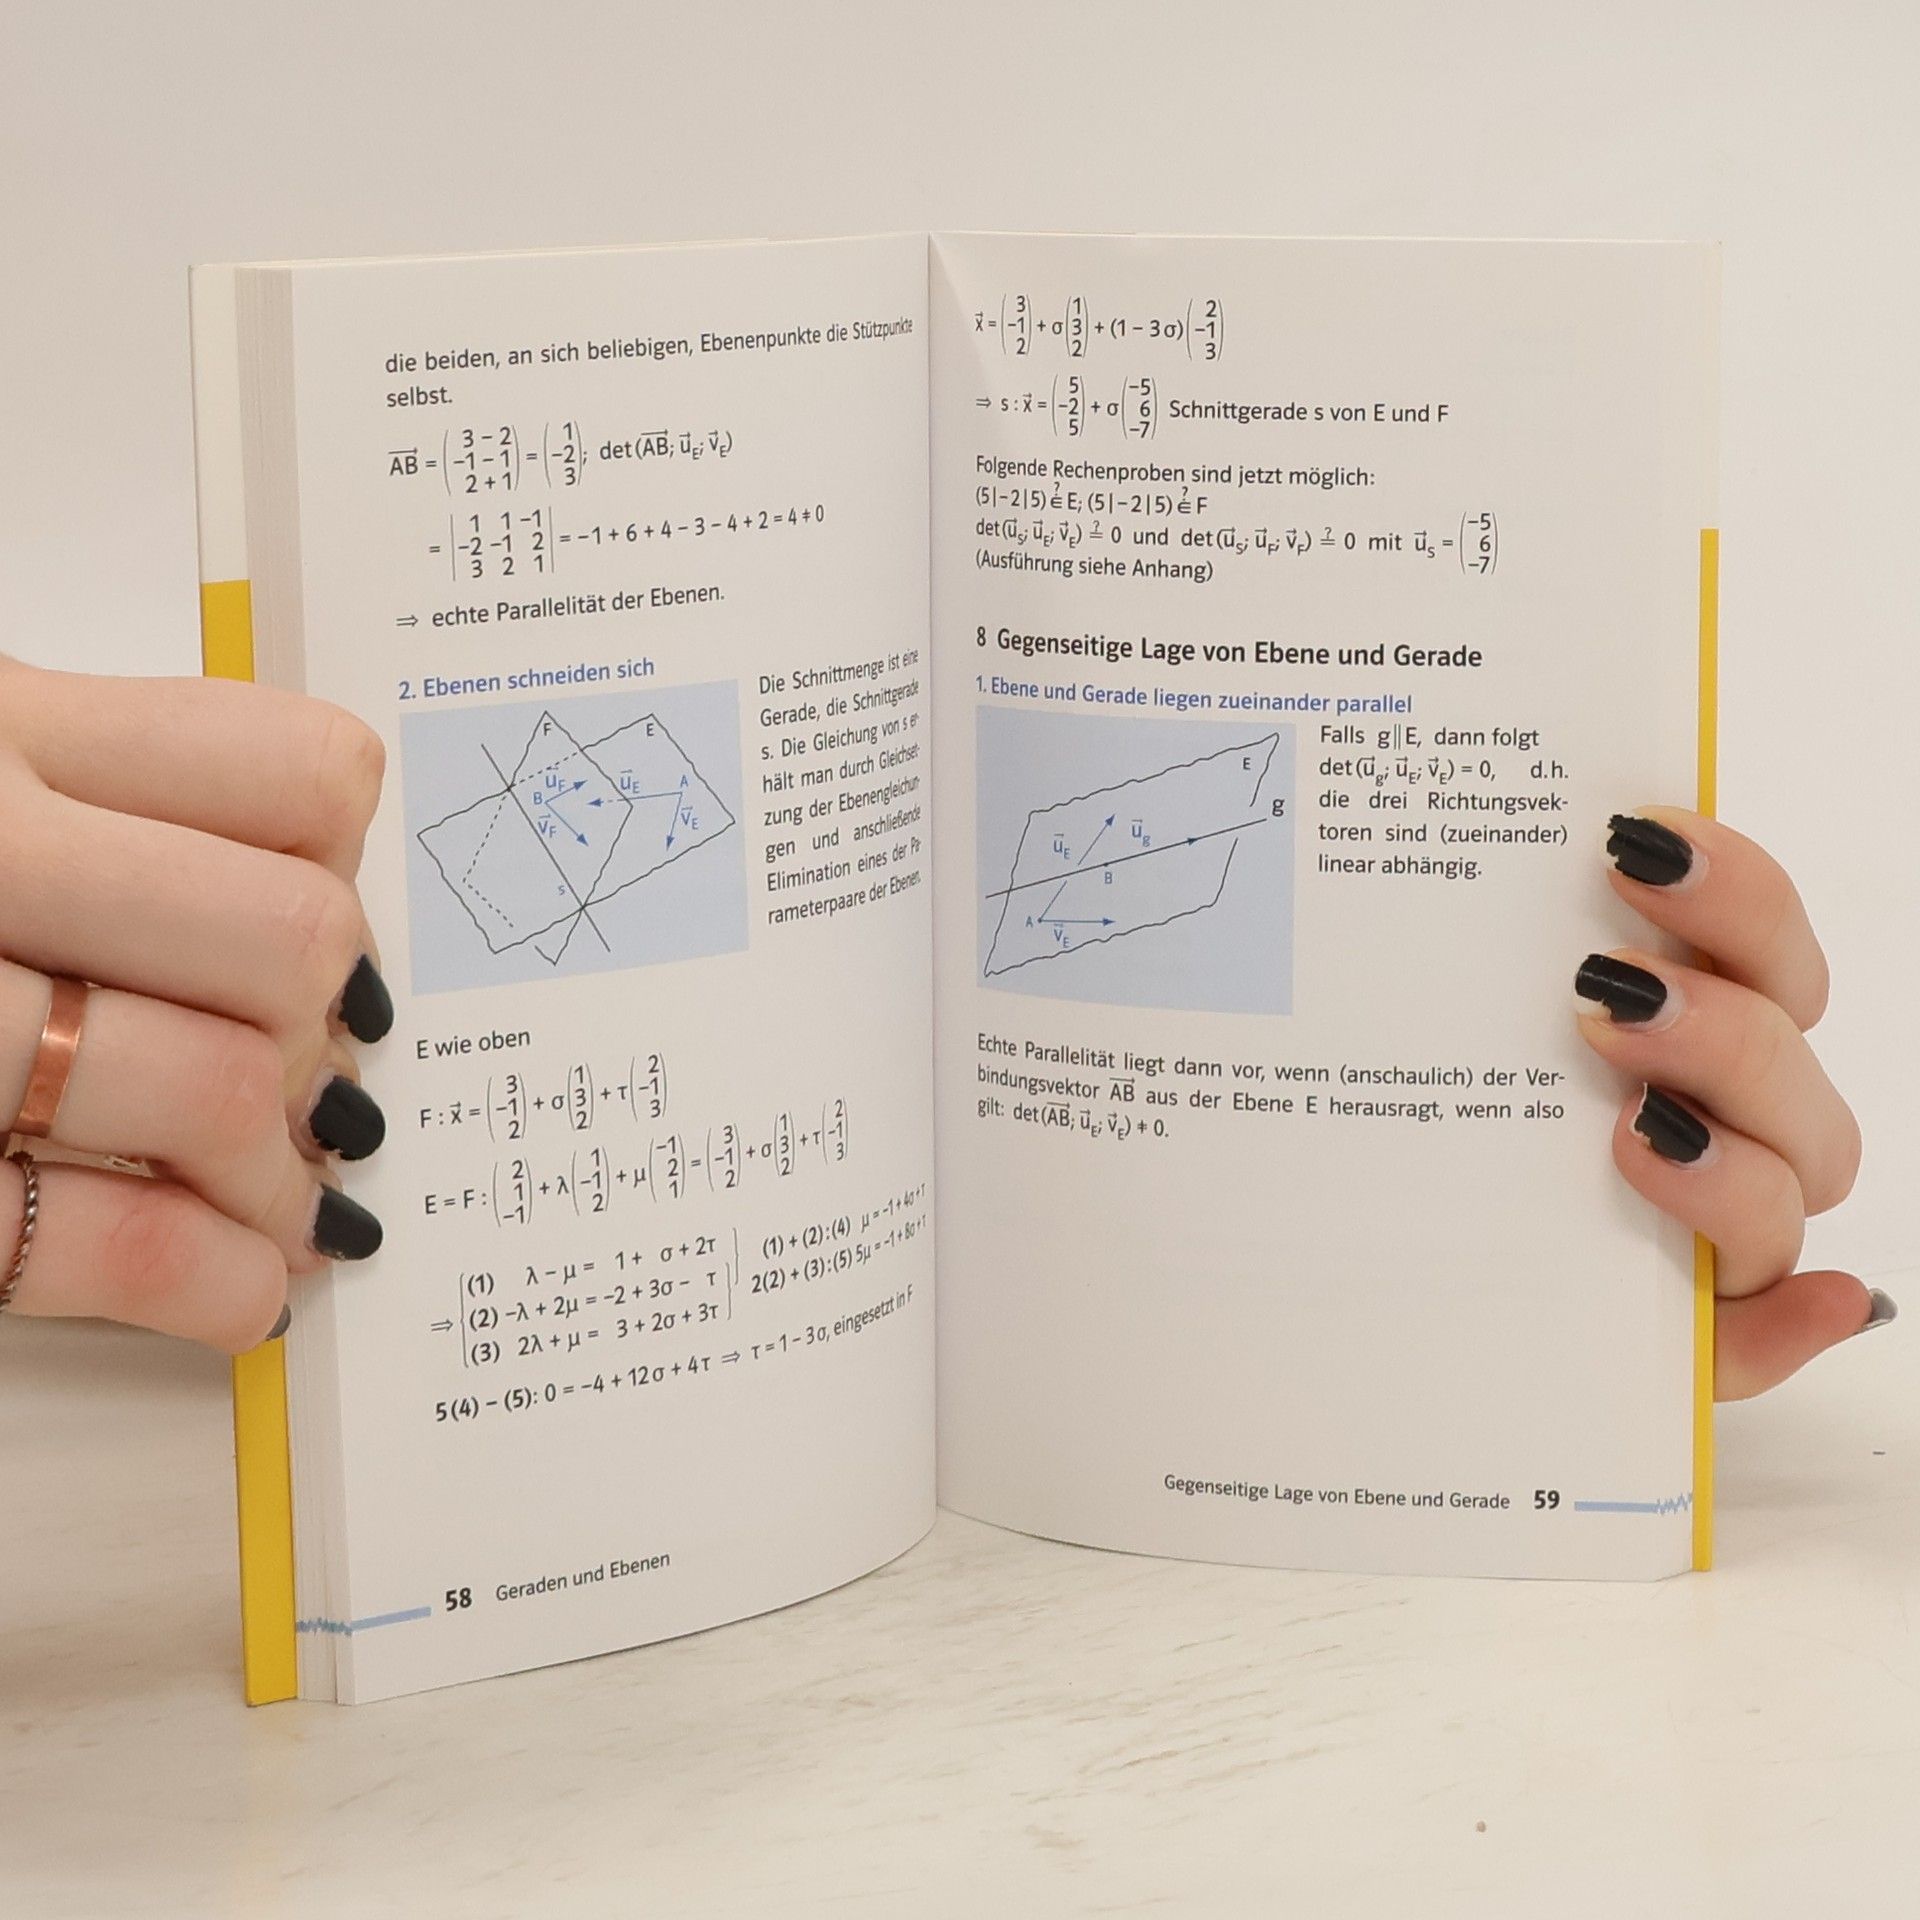 die beiden, an sich beliebigen, Ebenenpunkte die Stützpunkte
selbst.
AB⃗ = (3 − 2 / −1 − 1 / 2 + 1) = (1 / −2 / 3); det (AB⃗; u⃗_E; v⃗_E)
= |1 1 −1 / −2 −1 2 / 3 2 1| = −1 + 6 + 4 − 3 − 4 + 2 = 4 ≠ 0
⇒ echte Parallelität der Ebenen.
2. Ebenen schneiden sich
F E
u⃗_F u⃗_E A
B
v⃗_F v⃗_E
s
Die Schnittmenge ist eine
Gerade, die Schnittgerade
s. Die Gleichung von s er-
hält man durch Gleichset-
zung der Ebenengleichun-
gen und anschließende
Elimination eines der Pa-
rameterpaare der Ebenen.
E wie oben
F : x⃗ = (3 / −1 / 2) + σ (1 / 3 / 2) + τ (2 / −1 / 3)
E = F : (2 / 1 / −1) + λ (1 / −1 / 2) + μ (−1 / 2 / 1) = (3 / −1 / 2) + σ (1 / 3 / 2) + τ (2 / −1 / 3)
(1) λ − μ = 1 + σ + 2τ (1) + (2) : (4) μ = −1 + 4σ + τ
⇒ (2) −λ + 2μ = −2 + 3σ − τ 2(2) + (3) : (5) 5μ = −1 + 8σ + τ
(3) 2λ + μ = 3 + 2σ + 3τ
5(4) − (5): 0 = −4 + 12σ + 4τ ⇒ τ = 1 − 3σ, eingesetzt in F
58 Geraden und Ebenen
x⃗ = (3 / −1 / 2) + σ (1 / 3 / 2) + (1 − 3σ) (2 / −1 / 3)
⇒ s : x⃗ = (5 / −2 / 5) + σ (−5 / 6 / −7) Schnittgerade s von E und F
Folgende Rechenproben sind jetzt möglich:
(5|−2|5) ∈? E; (5|−2|5) ∈? F
det (u⃗_s; u⃗_E; v⃗_E) =? 0 und det (u⃗_s; u⃗_F; v⃗_F) =? 0 mit u⃗_s = (−5 / 6 / −7)
(Ausführung siehe Anhang)
8 Gegenseitige Lage von Ebene und Gerade
1. Ebene und Gerade liegen zueinander parallel
E
g
u⃗_E u⃗_g
B
A
v⃗_E
Falls g||E, dann folgt
det (u⃗_g; u⃗_E; v⃗_E) = 0, d. h.
die drei Richtungsvek-
toren sind (zueinander)
linear abhängig.
Echte Parallelität liegt dann vor, wenn (anschaulich) der Ver-
bindungsvektor AB⃗ aus der Ebene E herausragt, wenn also
gilt: det (AB⃗; u⃗_E; v⃗_E) ≠ 0.
Gegenseitige Lage von Ebene und Gerade 59